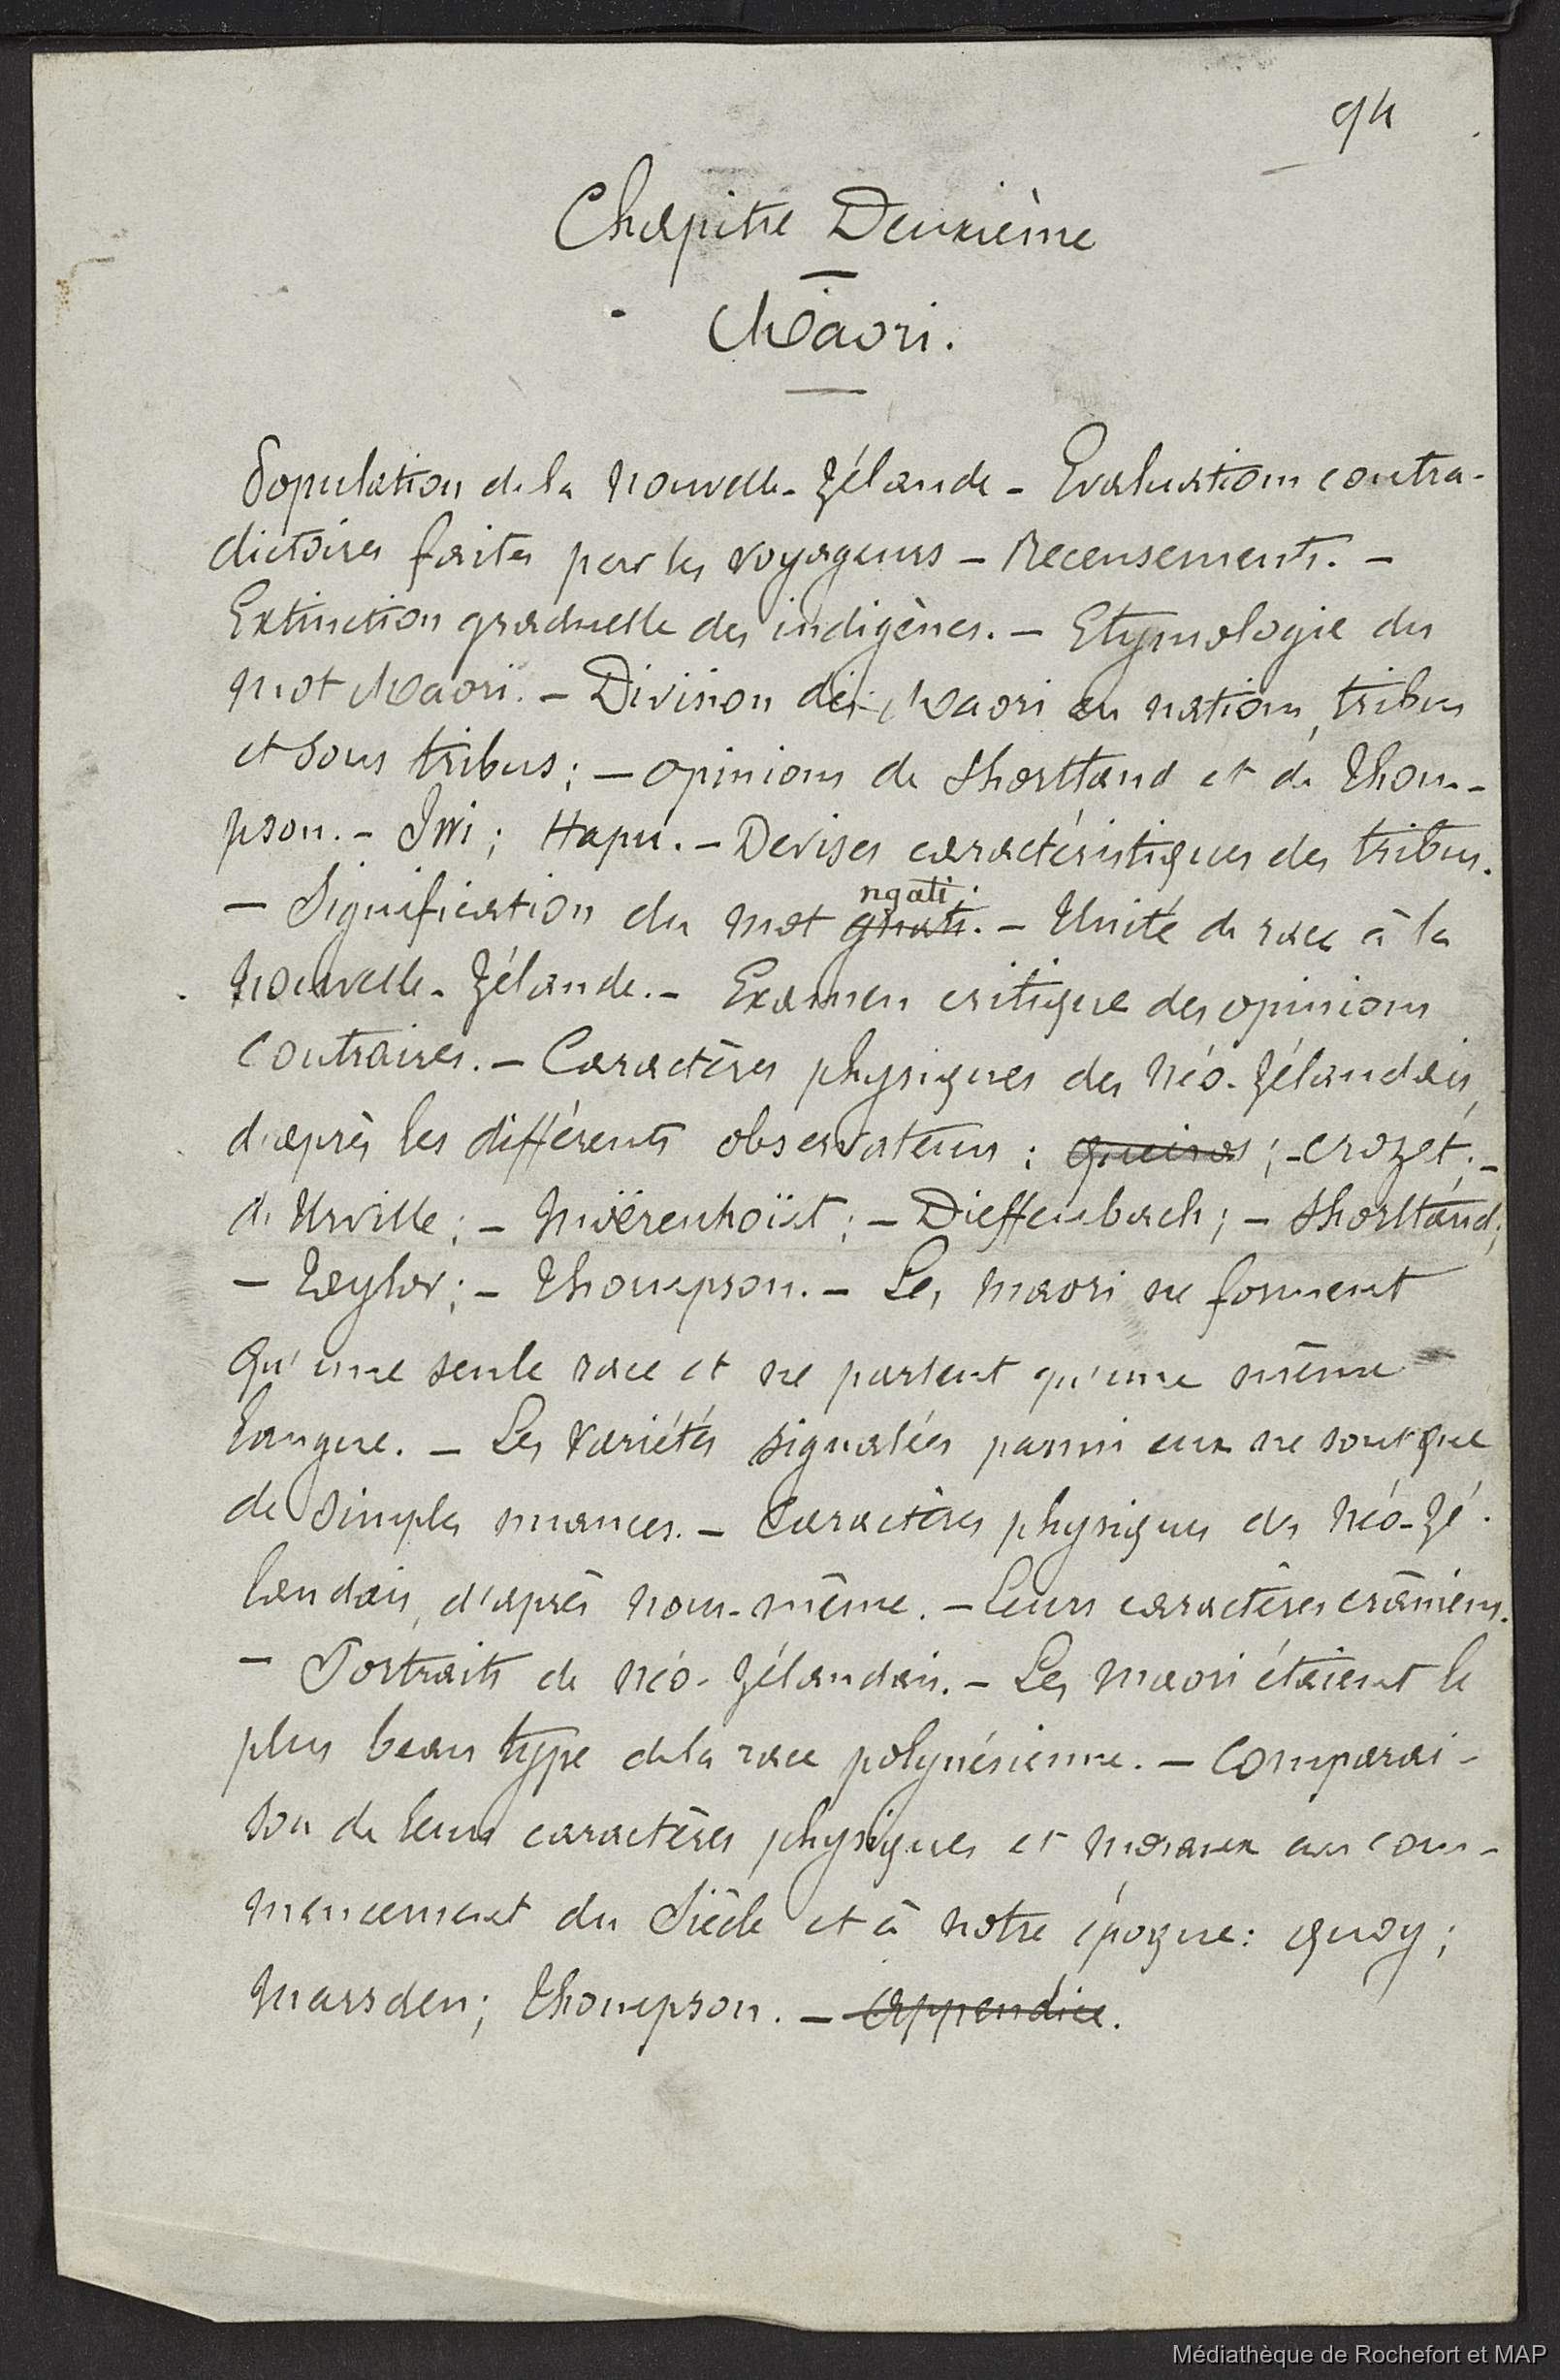 94
Chapitre Deuxième
Maori.
Population de la Nouvelle-Zélande - Evaluations contra-
dictoires faites par les voyageurs - Recensements. -
Extinction graduelle des indigènes. - Etymologie du
mot Maori. - Division des Maori en nations, tribus
et sous tribus; - opinions de Shortland et de Thom-
pson. - Iwi; Hapu. - Devises caractéristiques des tribus.
ngati.
- Signification du mot gnati. - Unité de race à la
Nouvelle-Zélande. - Examen critique des opinions
contraires. - Caractères physiques des Néo-Zélandais,
d'après les différents observateurs: Queiros; - Crozet; -
d'Urville; - Moërenhoüt; - Dieffenbach; - Shortland;
- Taylor; - Thompson. - Les Maori ne forment
qu'une seule race et ne parlent qu'une même
langue. - Les variétés signalées parmi eux ne sont que
de simples nuances. - Caractères physiques des Néo-Zé-
landais, d'après nous-même. - Leurs caractères crâniens.
- Portraits de Néo-Zélandais. - Les Maori étaient le
plus beau type de la race polynésienne. - Comparai-
son de leurs caractères physiques et moraux au com-
mencement du Siècle et à notre époque: Quoy;
Marsden; Thompson. - Appendice.
Médiathèque de Rochefort et MAP